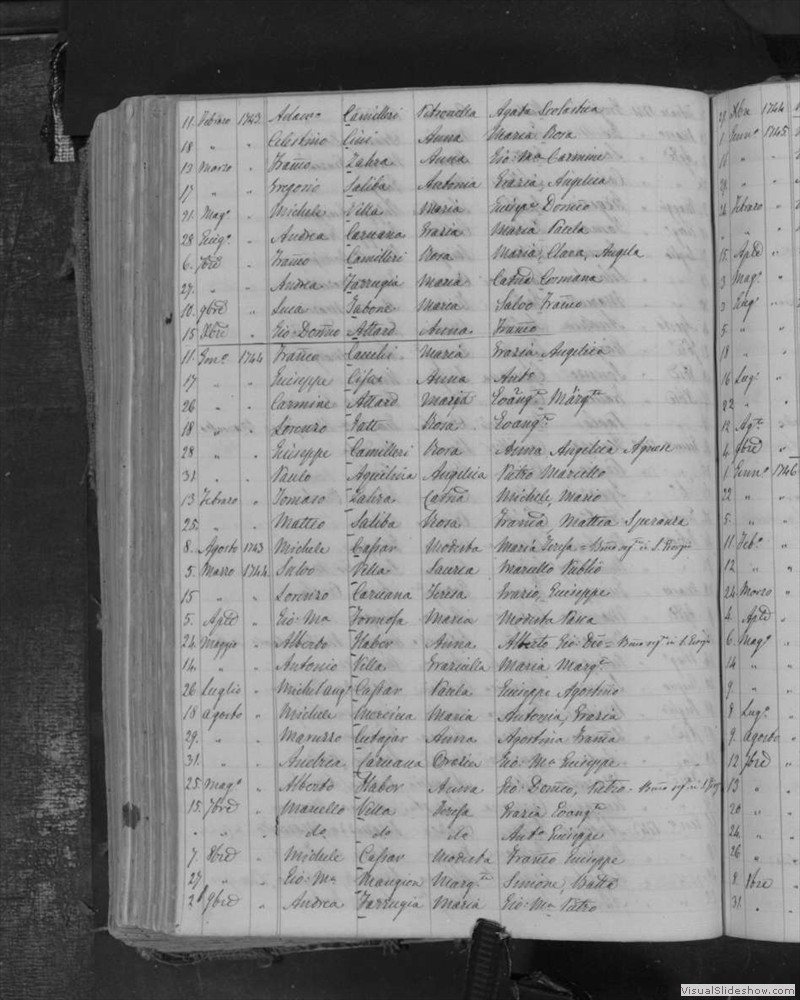 11 Febraro 1743 Adamo Camilleri Petronella Agata Scolastica
18 " " Celestino Cini Anna Maria Rosa
13 Marzo " Franco Zahra Anna Gio: Ma Carmine
17 " " Gregorio Saliba Antonia Grazia Angelica
21 Mago " Michele Villa Maria Giuspe Domco
28 Giugo " Andrea Caruana Grazia Maria Paola
6 7bre " Franco Camilleri Rosa Maria, Clara, Angela
27 " " Andrea Farrugia Maria Catna Gomana
10 9bre " Luca Tabone Maria Salvo Franco
15 Xbre " Gio: Domco Attard Anna Franco
11 Genro 1744 Franco Maria Grazia Angelica
17 " " Giuseppe Anna Anto
26 " " Carmine Attard Maria Evangta Margta
18 " " Lorenzo Gatt Rosa Evangta
28 " " Giuseppe Camilleri Rosa Anna Angelica Agnese
31 " " Paulo Aquilina Angelica Pietro Marcello
13 Febraro " Tomaso Zahra Catna Michele, Mario
25 " " Matteo Saliba Rosa Franca Mattea Speranza
8 Agosto 1743 Michele Cassar Modesta Maria Teresa =
5 Marzo 1744 Salvo Vella Laurea Marcello Publio
15 " " Lorenzo Caruana Teresa Grazio, Giuseppe
5 Aple " Gio: Ma Formosa Maria Modesta Pasca
24 Maggio " Alberto Habor Anna Alberto Gio: Dno =
14 " " Antonio Villa Graziella Maria Margta
26 Luglio " Michel'ango Cassar Paula Giuseppe Agostino
18 Agosto " Michele Maria Antonia, Grazia
29 " " Maruzzo Cutajar Anna Agostina Franca
31 " " Andrea Caruana Orazia Gio: Ma Giuseppe
25 Mago " Alberto Habor Anna Gio: Domco, Pietro -
15 7bre " Marcello Villa Teresa Grazia Evangta
" " " do do do Anto Giuseppe
7 8bre " Michele Cassar Modesta Franco Giuseppe
27 " " Gio: Ma Mangion Margta Simione, Batta
2 9bre " Andrea Farrugia Maria Gio: Ma Pietro
21 Xbre 1744
1 Genno 1745
16 "
29 "
26 Febraro "
" "
15 Aple "
3 Mago "
2 Giugo "
5 "
18 "
16 Lugo "
22 "
12 Agto "
4 9bre "
1 Genno 1746
22 " "
5 " "
11 Febo "
12 " "
24 Marzo "
4 Aple "
6 Mago "
14 " "
9 " "
8 Lugo "
9 Agosto "
12 7bre "
13 " "
20 " "
24 " "
26 " "
8 Xbre "
31 " "
VisualSlideshow.com